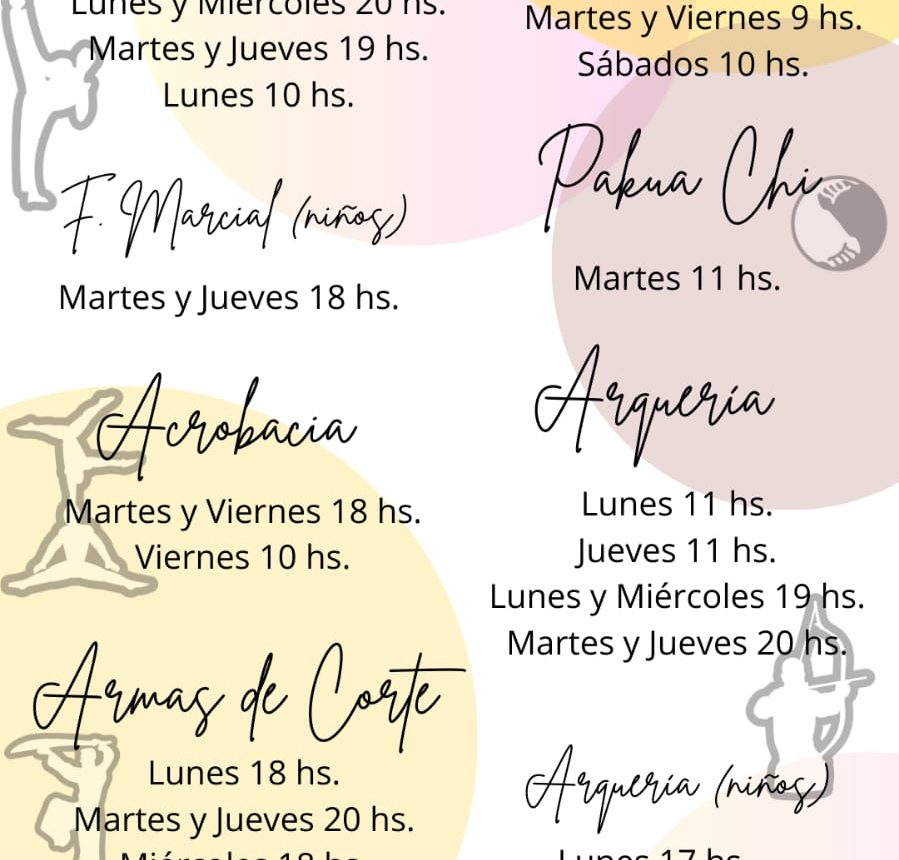 Lunes y Miércoles 20 hs.
Martes y Jueves 19 hs.
Lunes 10 hs.
F. Marcial (niños)
Martes y Jueves 18 hs.
Acrobacia
Martes y Viernes 18 hs.
Viernes 10 hs.
Armas de Corte
Lunes 18 hs.
Martes y Jueves 20 hs.
Martes y Viernes 9 hs.
Sábados 10 hs.
Pakua Chi
Martes 11 hs.
Arquería
Lunes 11 hs.
Jueves 11 hs.
Lunes y Miércoles 19 hs.
Martes y Jueves 20 hs.
Arquería (niños)
Lunes 17 hs.